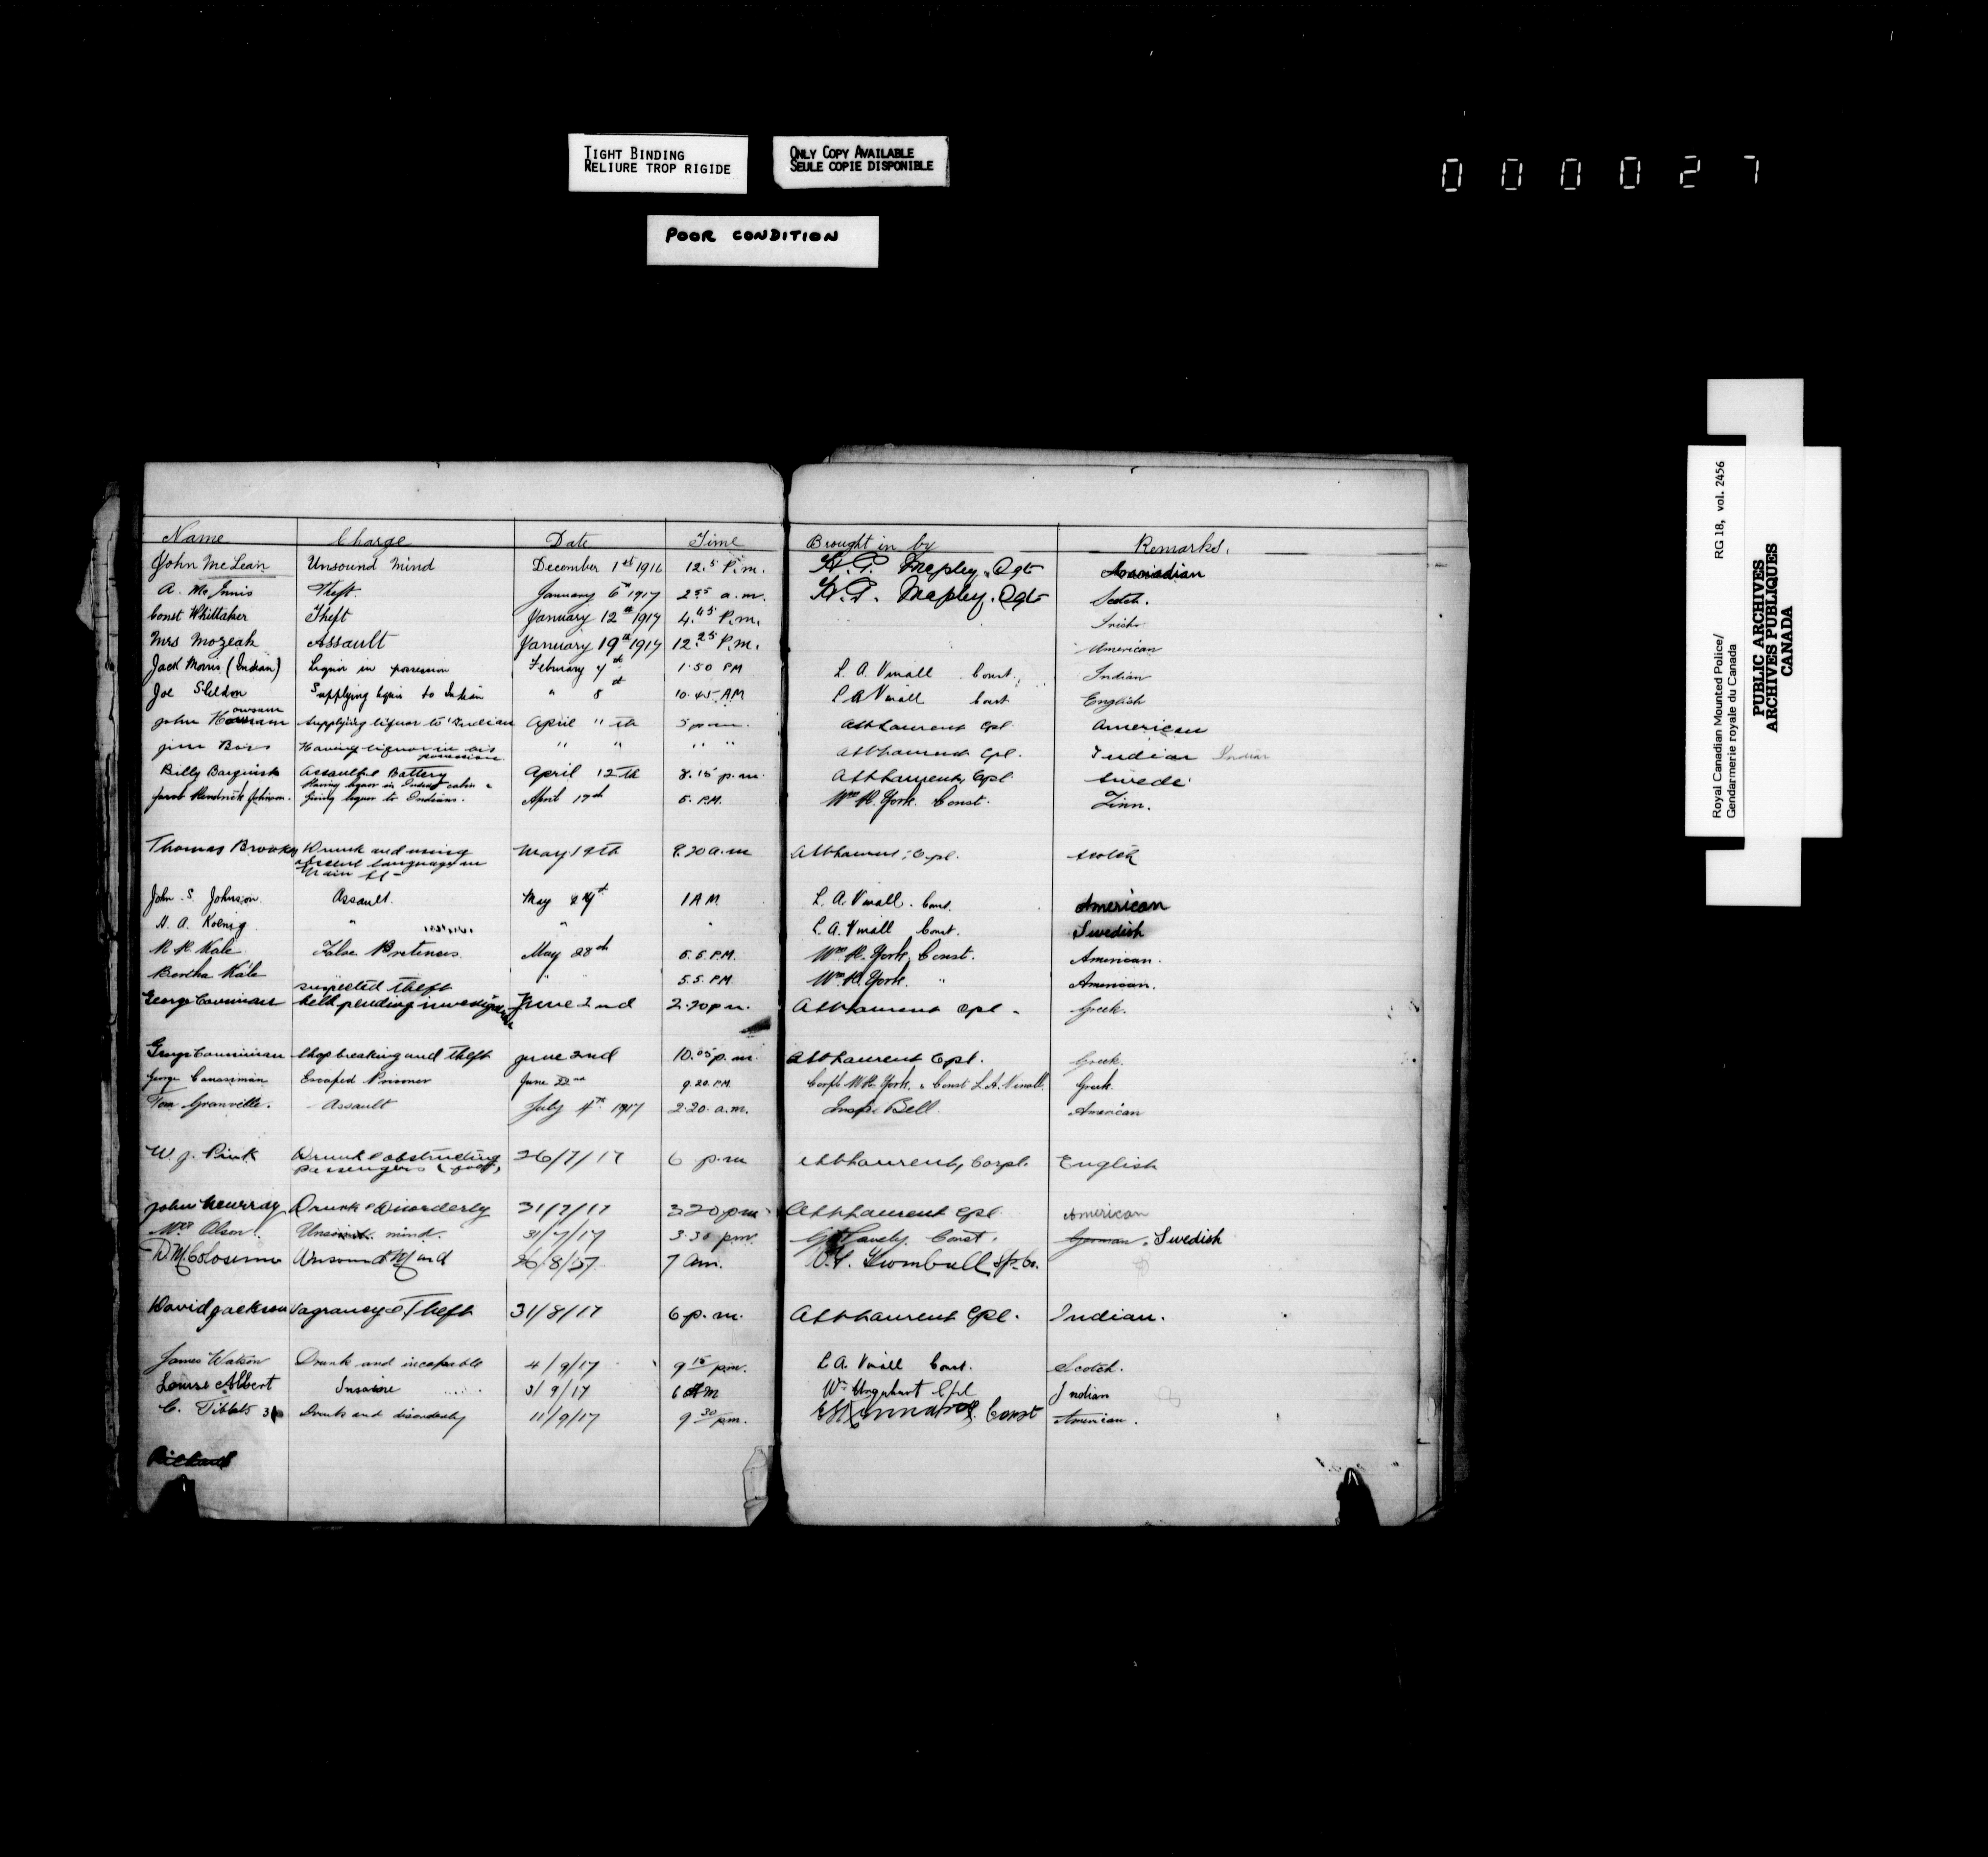 TIGHT BINDING
RELIURE TROP RIGIDE
ONLY COPY AVAILABLE
SEULE COPIE DISPONIBLE
POOR CONDITION
000027
Royal Canadian Mounted Police/ RG 18, vol. 2456
Gendarmerie royale du Canada
PUBLIC ARCHIVES
ARCHIVES PUBLIQUES
CANADA
Name Charge Date Time Brought in by Remarks.
John McLean Unsound Mind December 1st 1916 12.5 P.m. Canadian
A. McInnis Theft. January 6th 1917 2 a.m. Scotch.
Const Whittaker Theft January 12th 1917 4.45 P.m. Irish
Mrs Mozeah Assault January 19th 1917 12.25 P.m. American
Jack Morris (Indian) Liquor in possession February 7th 1.50 PM L. A. Vinall Const. Indian
Joe Sheldon Supplying liquor to Indian " 8th 10.45 AM L A Vinall Const English
John supplying liquor to Indian April 11th 5 p.m. Cpl American
Having liquor in his " " " " Cpl. Indian Indian
possession
Billy Assault & Battery April 12th 8.15 p.m. Cpl. Swede
Having liquor in Indian cabin &
Jacob Hendrick Johnson. Giving liquor to Indians. April 17th 5. P.M. Wm R. York. Const. Finn.
Thomas Brooks Drunk and using May 19th 9.20 a.m Cpl. Scotch
language on
Main St
John. S. Johnson. Assault. May 1 A M. L. A. Vinall. Const. American
H. A. Koenig " " " L. A. Vinall Const. Swedish
R. R. Kale False Pretences. May 28th 5.5. P.M. Wm R. York. Const. American.
Bertha Kale " " 5.5. P.M Wm R. York. " American.
suspected theft
George held pending investigation June 2nd 2.20 p.m. Cpl. Greek.
George shop breaking and theft June 2nd 10.05 p.m. Cpl. Greek.
George Escaped Prisoner June 22nd 9.20. P.M. Corpl. W.R. York. & Const L.A. Vinall. Greek.
Tom Granville. Assault July 4th 1917 2.20. a.m. Insp. Bell. American
W. J. Pink Drunk & obstructing 26/7/17 6 p.m Corpl. English
passengers
John Murray Drunk & Disorderly 31/7/17 3 20 pm Cpl. American
Mrs Olson. Unsound mind. 31/7/17 3.30 pm. Const. German. Swedish
Unsound Mind 7 am.
David Jackson Vagrancy & Theft 31/8/17 6 p.m. Cpl. Indian.
James Watson Drunk and incapable 4/9/17 9 15 p.m. L A. Vinall Const. Scotch.
Louise Albert Insane 3/9/17 6 AM Wm Urquhart Cpl Indian
C. Tibbets Drunk and disorderly 11/9/17 9 30 pm. Const American.